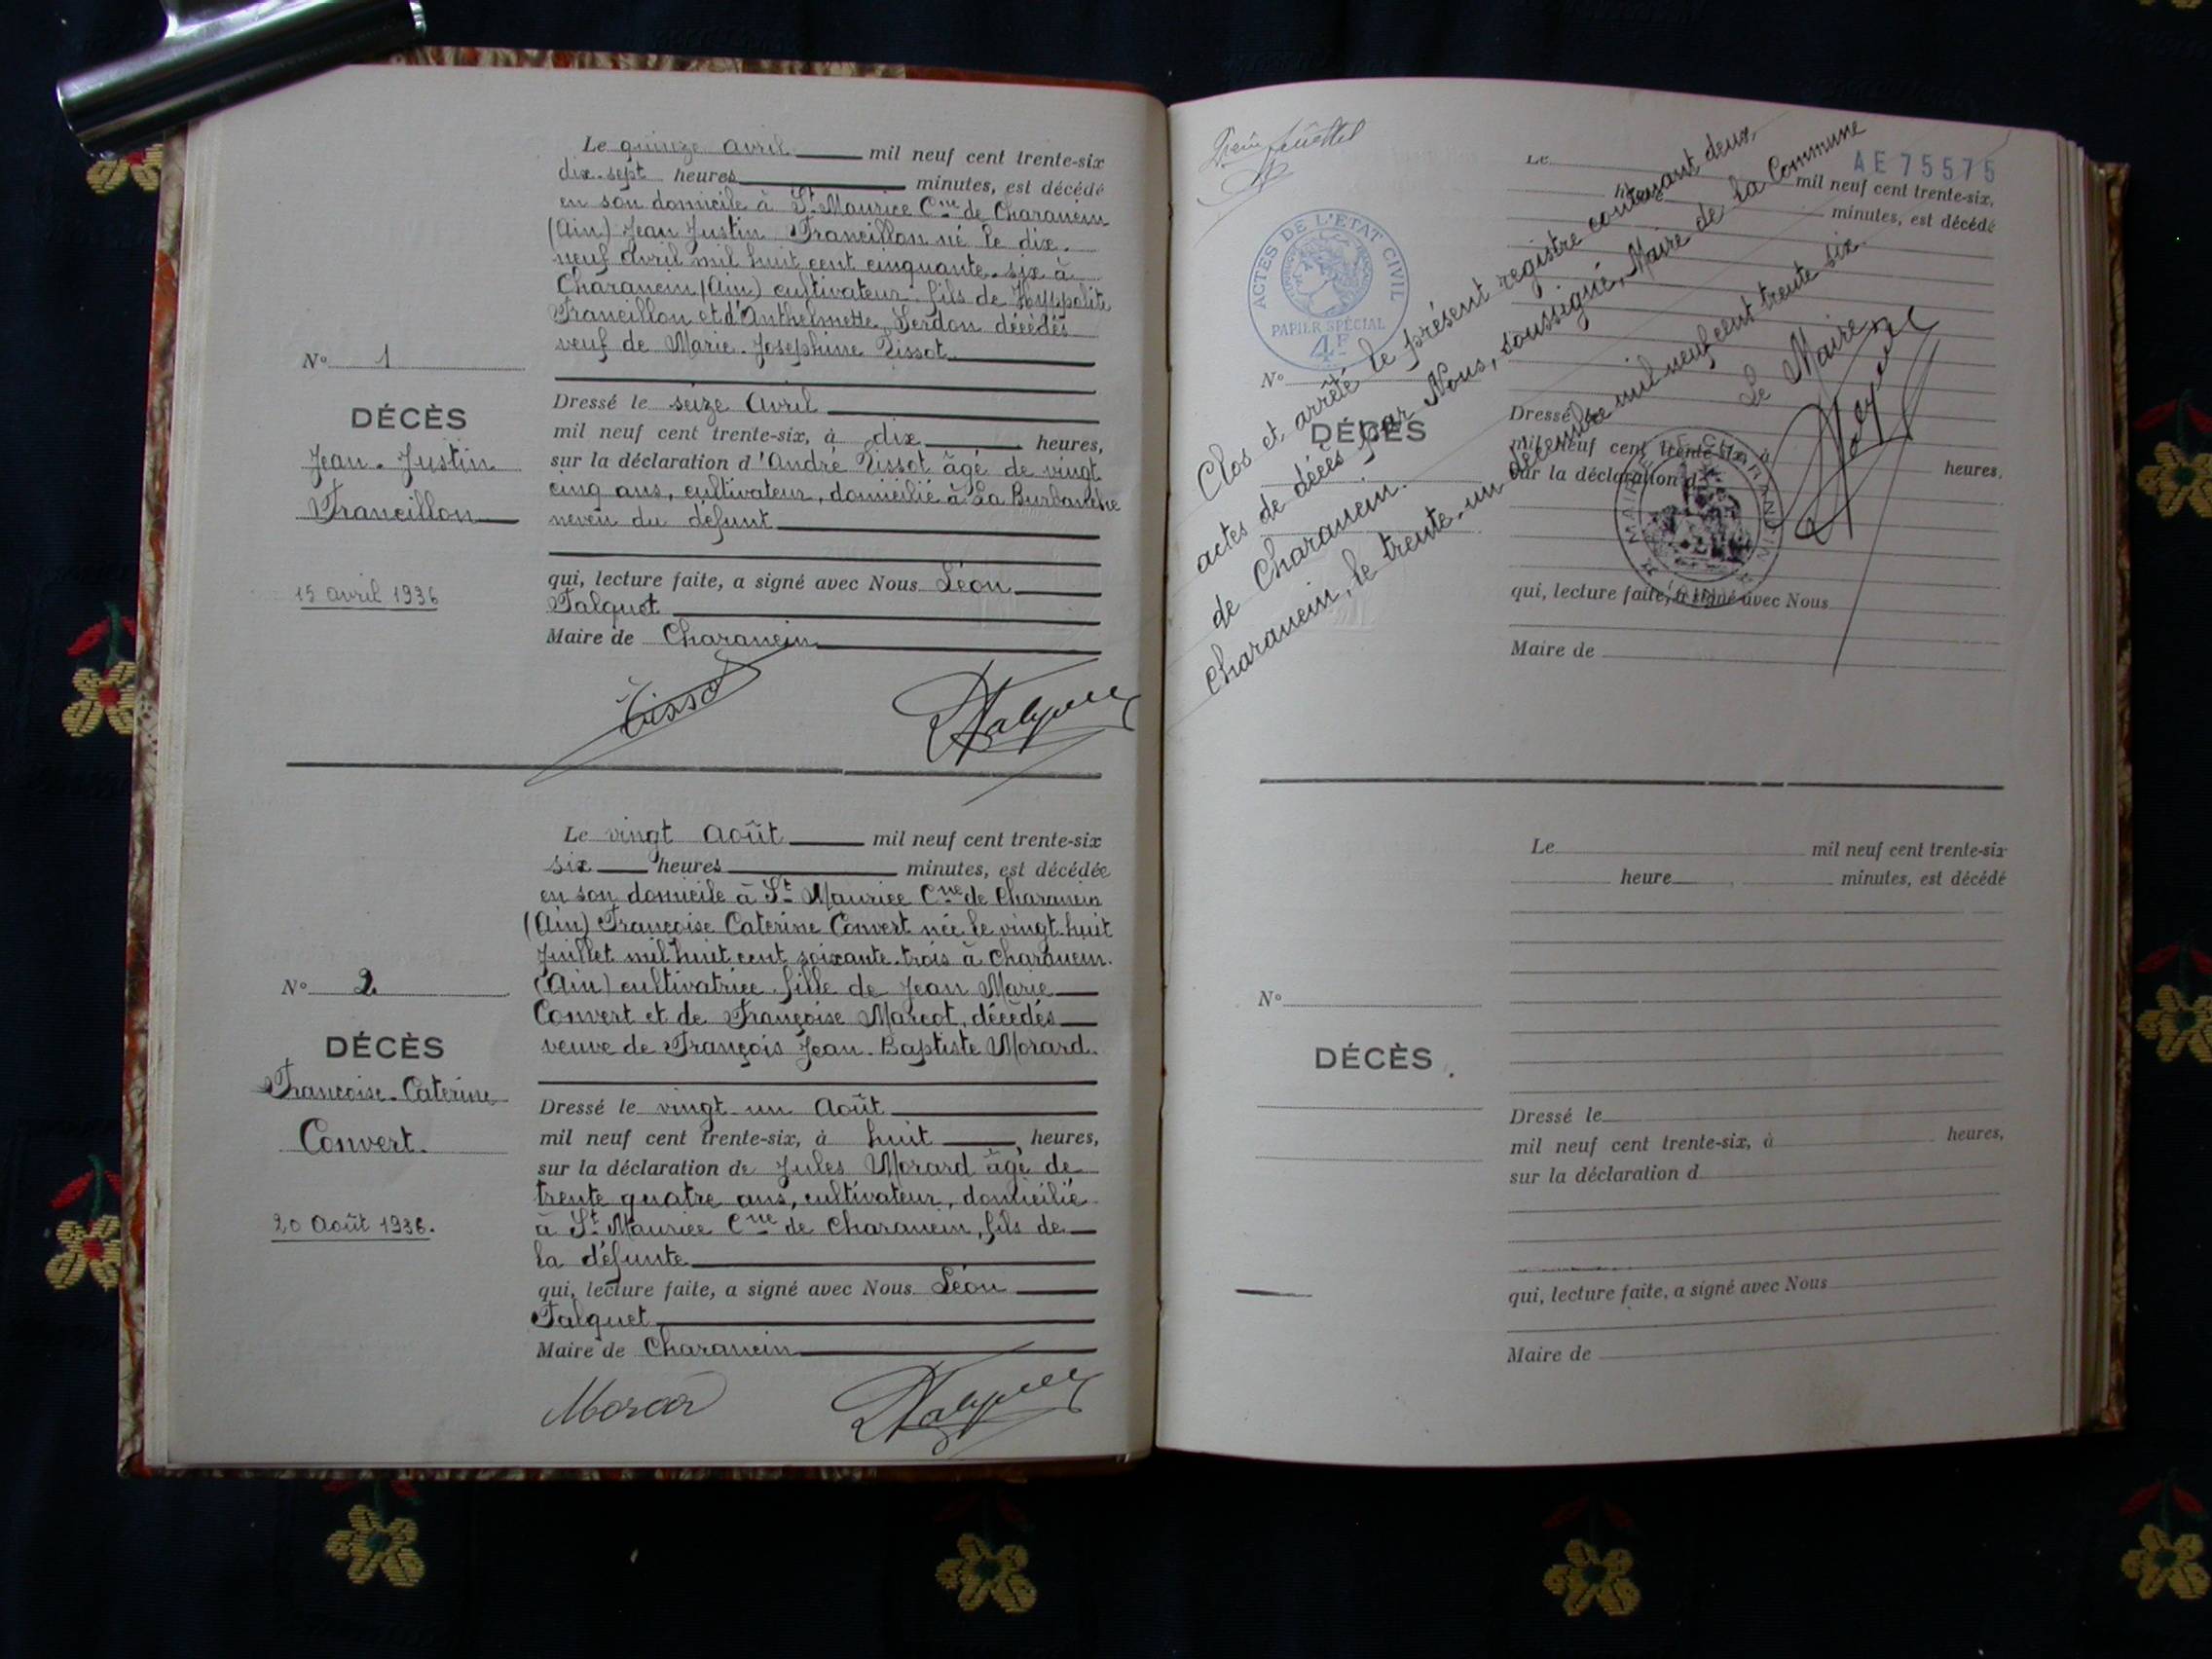 Le quinze Avril mil neuf cent trente-six
dix-sept heures minutes, est décédé
en son domicile à St Maurice Cne de Charancin
(Ain) Jean Justin Francillon né le dix-
neuf Avril mil huit cent cinquante-six à
Charancin (Ain) cultivateur. fils de Hyppolite
Francillon et d'Anthelmette Serdon décédés
veuf de Marie-Josephine Tissot
N° 1
DÉCÈS
Jean-Justin
Francillon
15 Avril 1936
Dressé le seize Avril
mil neuf cent trente-six, à dix heures,
sur la déclaration d'André Tissot âgé de vingt
cinq ans, cultivateur, domicilié à La Burbanche
neveu du défunt
qui, lecture faite, a signé avec Nous Léon
Falquet
Maire de Charancin
Tissot
Falquet
Le vingt Août mil neuf cent trente-six
six heures minutes, est décédée
en son domicile à St Maurice Cne de Charancin
(Ain) Françoise Caterine Convert née le vingt-huit
Juillet mil huit cent soixante-trois à Charancin
(Ain) cultivatrice. fille de Jean Marie
Convert et de Françoise Marcot, décédés
veuve de François Jean-Baptiste Morard.
N° 2
DÉCÈS
Françoise-Caterine
Convert.
20 Août 1936.
Dressé le vingt-un Août
mil neuf cent trente-six, à huit heures,
sur la déclaration de Jules Morard âgé de
trente quatre ans, cultivateur, domicilié
à St Maurice Cne de Charancin, fils de
la défunte
qui, lecture faite, a signé avec Nous Léon
Falquet
Maire de Charancin
Morard
Falquet
AE 75575
ACTES DE L'ETAT CIVIL
PAPIER SPÉCIAL
4F
Le
mil neuf cent trente-six,
heure minutes, est décédé
Clos et arrêté le présent registre contenant deux
actes de décès par Nous, soussigné, Maire de la Commune
de Charancin.
Charancin, le trente-un décembre mil neuf cent trente six.
Le Maire
N°
DÉCÈS
Dressé le
mil neuf cent trente-six, à heures.
sur la déclaration d
qui, lecture faite, a signé avec Nous
Maire de
Le mil neuf cent trente-six
heure minutes, est décédé
N°
DÉCÈS
Dressé le
mil neuf cent trente-six, à heures,
sur la déclaration d
qui, lecture faite, a signé avec Nous
Maire de